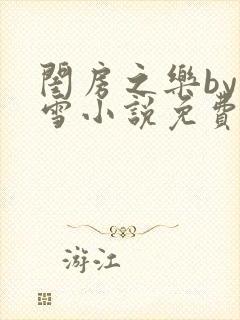 閨房之樂by
雪小說免費
游江